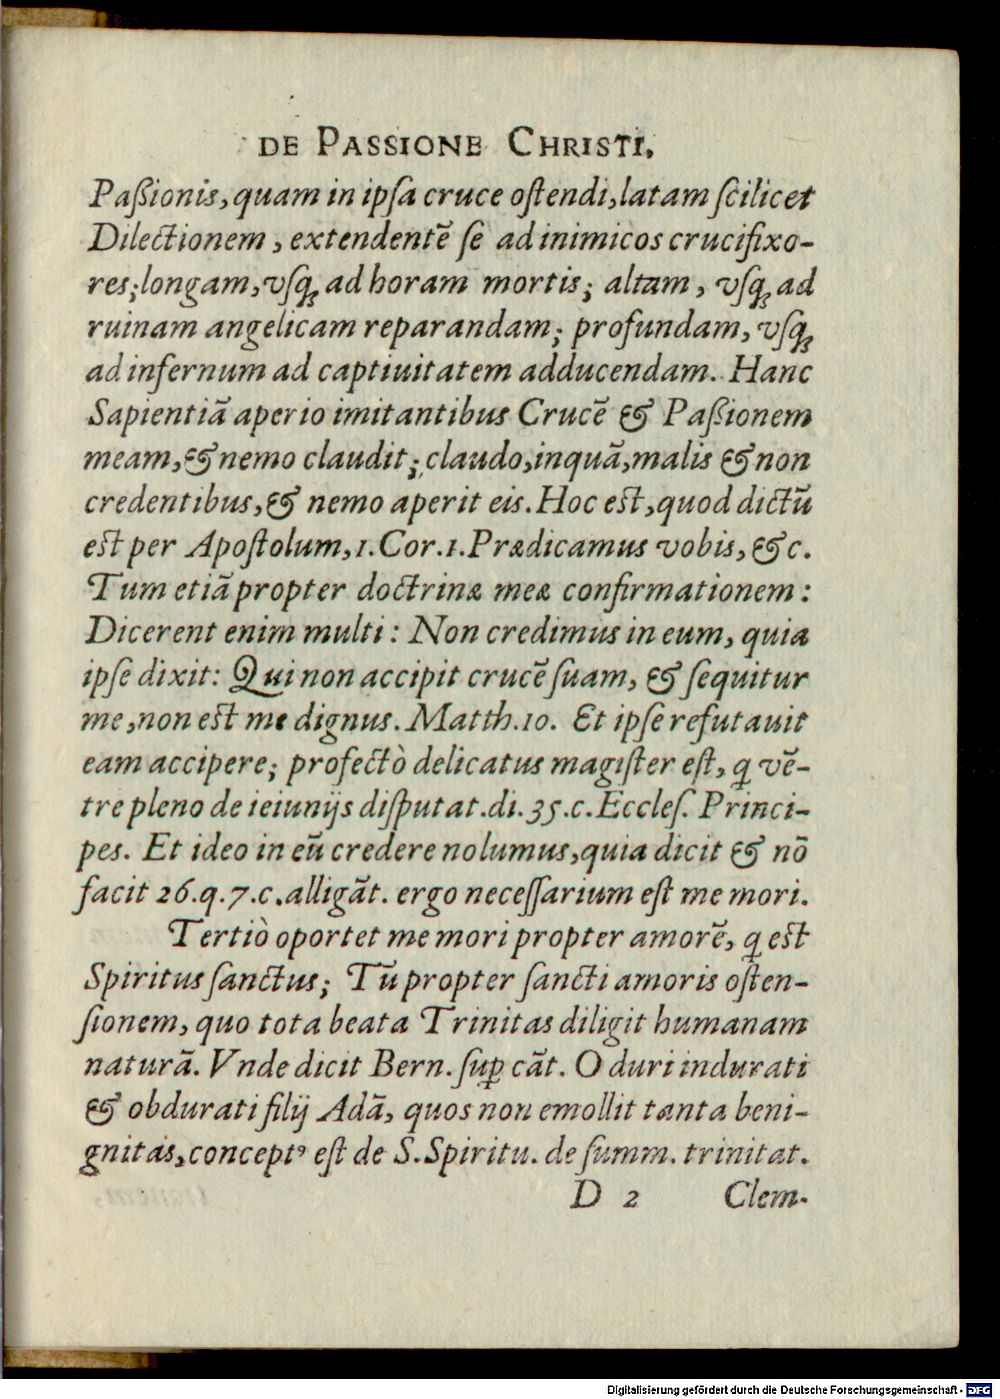 DE PASSIONE CHRISTI.
Paßionis, quam in ipſa cruce oſtendi, latam ſcilicet
Dilectionem, extendentē ſe ad inimicos crucifixo-
res; longam, vſq́ꝫ ad horam mortis; altam, vſq́ꝫ ad
ruinam angelicam reparandam; profundam, vſq́ꝫ
ad infernum ad captiuitatem adducendam. Hanc
Sapientiā aperio imitantibus Crucē & Paßionem
meam, & nemo claudit; claudo, inquā, malis & non
credentibus, & nemo aperit eis. Hoc est, quod dictū
est per Apoſtolum, 1. Cor. 1. Prædicamus vobis, &c.
Tum etiā propter doctrinæ meæ confirmationem:
Dicerent enim multi: Non credimus in eum, quia
ipſe dixit: Qui non accipit crucē ſuam, & ſequitur
me, non est me dignus. Matth. 10. Et ipſe refutauit
eam accipere; profectò delicatus magiſter eſt, q̃ vē-
tre pleno de ieiunijs diſputat. di. 35. c. Eccleſ. Princi-
pes. Et ideo in eū credere nolumus, quia dicit & nō
facit 26. q. 7. c. alligāt. ergo neceſſarium eſt me mori.
Tertiò oportet me mori propter amorē, q̃ est
Spiritus ſanctus; Tū propter ſancti amoris oſten-
ſionem, quo tota beata Trinitas diligit humanam
naturā. Vnde dicit Bern. ſuꝑ cāt. O duri indurati
& obdurati filij Adā, quos non emollit tanta beni-
gnitas, conceptꝰ eſt de S. Spiritu. de ſumm. trinitat.
D 2 Clem-
Digitalisierung gefördert durch die Deutsche Forschungsgemeinschaft - DFG